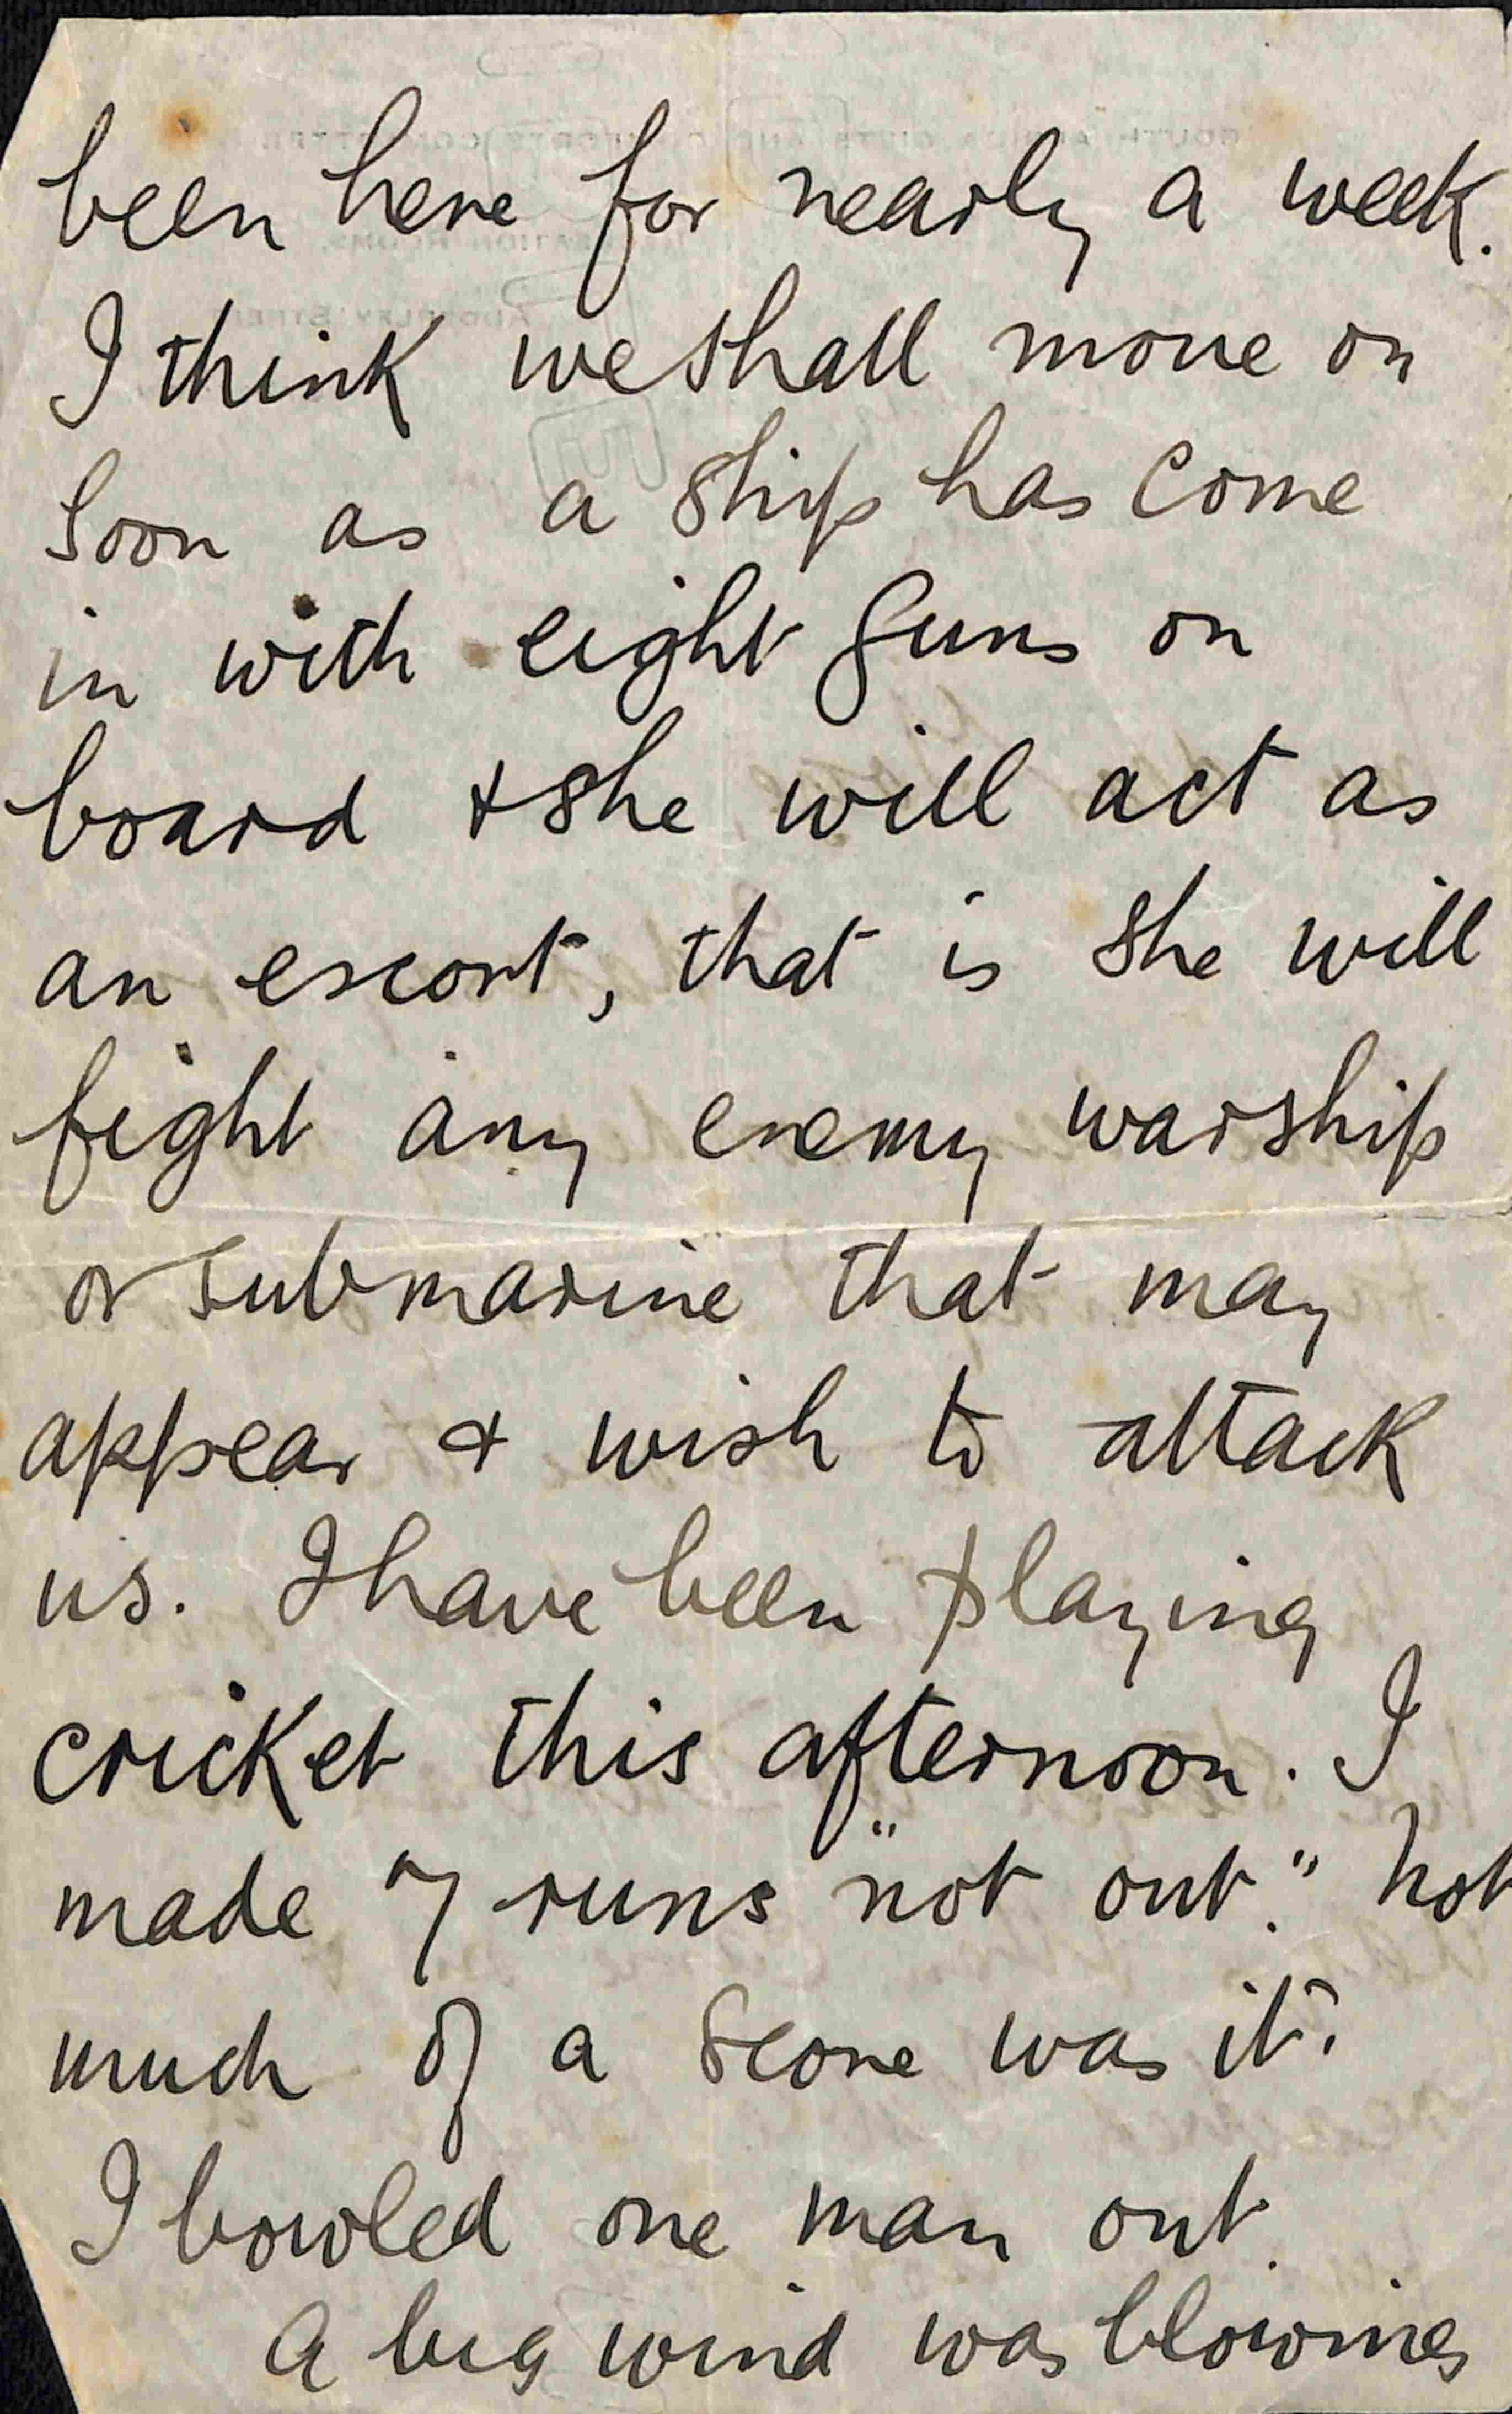 been here for nearly a week.
I think we shall move on
soon as a ship has come
in with eight guns on
board & she will act as
an escort, that is she will
fight any enemy warship
or submarine that may
appear & wish to attack
us. I have been playing
cricket this afternoon. I
made 7 runs "not out." Not
much of a score was it?
I bowled one man out.
A big wind was blowing